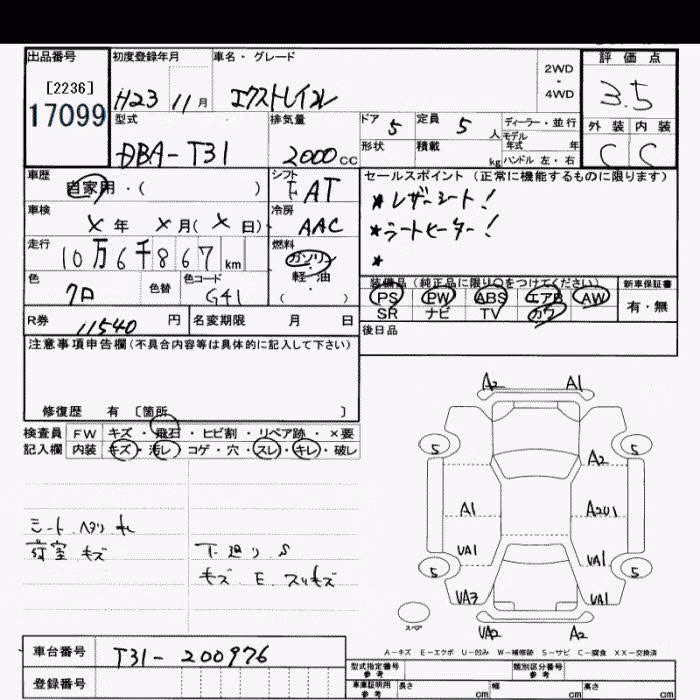 出品番号 初度登録年月 車名・グレード 評価点
[2236] 2WD
17099 H23 11月 エクストレイル ・ 3.5
4WD
型式 排気量 ドア 5 定員 5 人 ディーラー・並行 外装 内装
DBA-T31 2000cc モデル年式 年 C C
形状 積載 kg ハンドル 左・右
車歴 シフト セールスポイント(正常に機能するものに限ります)
自家用・( ) F AT * レザーシート!
車検 X年 X月(X日) 冷房 AAC * シートヒーター!
走行 10万6千867km 燃料 ガソリン・軽油 ( ) *
色 クロ 色替 色コード G41
装備品(純正品に限り○をつけてください) 新車保証書
PS PW ABS エアB AW 有・無
SR ナビ TV カワ
R券 11540円 名変期限 月 日 後日品
注意事項申告欄(不具合内容等は具体的に記入して下さい)
修復歴 有 〔箇所 〕
検査員 FW キズ・飛石・ヒビ割・リペア跡・×要
記入欄 内装 キズ・汚レ・コゲ・穴・スレ・キレ・破レ
シート ヘタリ
荷室 キズ
下廻り S
キズ E スリキズ
A2 A1
5 5
A2
A1 A2U1
UA1 UA1
5 5
UA3 UA1
スペア UA2 A2
A-キズ E-エクボ U-凹み W-補修跡 S-サビ C-腐食 XX-交換済
車台番号 T31-200976
登録番号
型式指定番号 参考 類別区分番号 参考
車庫証明用 参考 長さ cm 幅 cm 高さ cm